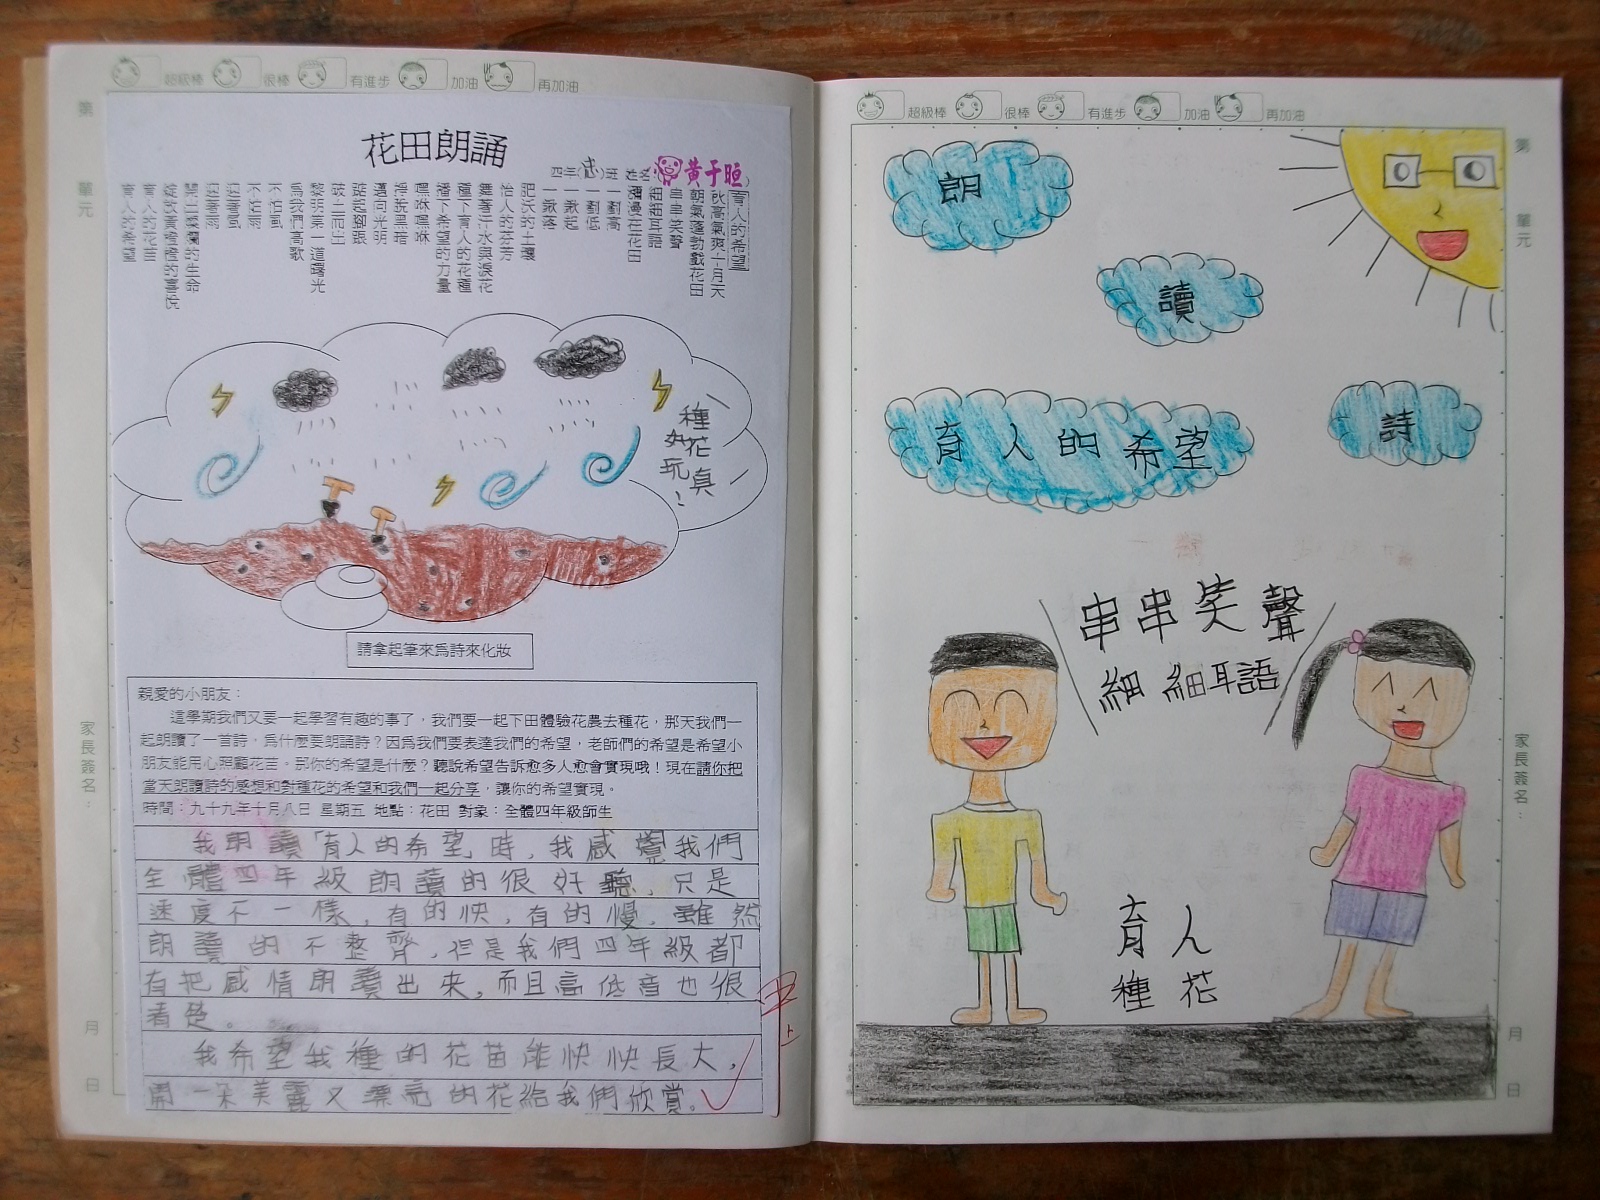 超級棒 很棒 有進步 加油 再加油
第
單元
家長簽名：
月
日
花田朗誦
四年(忠)班 姓名 黃于恆)
育人的希望
秋高氣爽十月天
朝氣蓬勃戲花田
串串笑聲
細細耳語
瀰漫在花田
一劃高
一劃低
一鍬起
一鍬落
肥沃的土壤
怡人的芬芳
雜著汗水與淚花
種下育人的花種
播下希望的力量
嘿咻嘿咻
掙脫黑暗
邁向光明
踮起腳跟
破土而出
黎明第一道曙光
為我們高歌
不怕風
不怕雨
迎著風
迎著雨
開出燦爛的生命
綻放黃橙橙的喜悅
育人的花苗
育人的希望
種花真
好玩！
請拿起筆來為詩來化妝
親愛的小朋友：
這學期我們又要一起學習有趣的事了，我們要一起下田體驗花農去種花，那天我們一
起朗讀了一首詩，為什麼要朗誦詩？因為我們要表達我們的希望，老師們的希望是希望小
朋友能用心照顧花苗。那你的希望是什麼？聽說希望告訴愈多人愈會實現哦！現在請你把
當天朗讀詩的感想和對種花的希望和我們一起分享，讓你的希望實現。
時間：九十九年十月八日 星期五 地點：花田 對象：全體四年級師生
我朗讀「育人的希望」時，我感覺我們
全體四年級朗讀的很好聽，只是
速度不一樣，有的快，有的慢，雖然
朗讀的不整齊，但是我們四年級都
有把感情朗讀出來，而且高低音也很
清楚。
我希望我種的花苗能快快長大，
開一朵美麗又漂亮的花給我們欣賞。
甲上
超級棒 很棒 有進步 加油 再加油
第
單元
家長簽名：
月
日
朗
讀
詩
育人的希望
串串笑聲
細細耳語
育人
種花